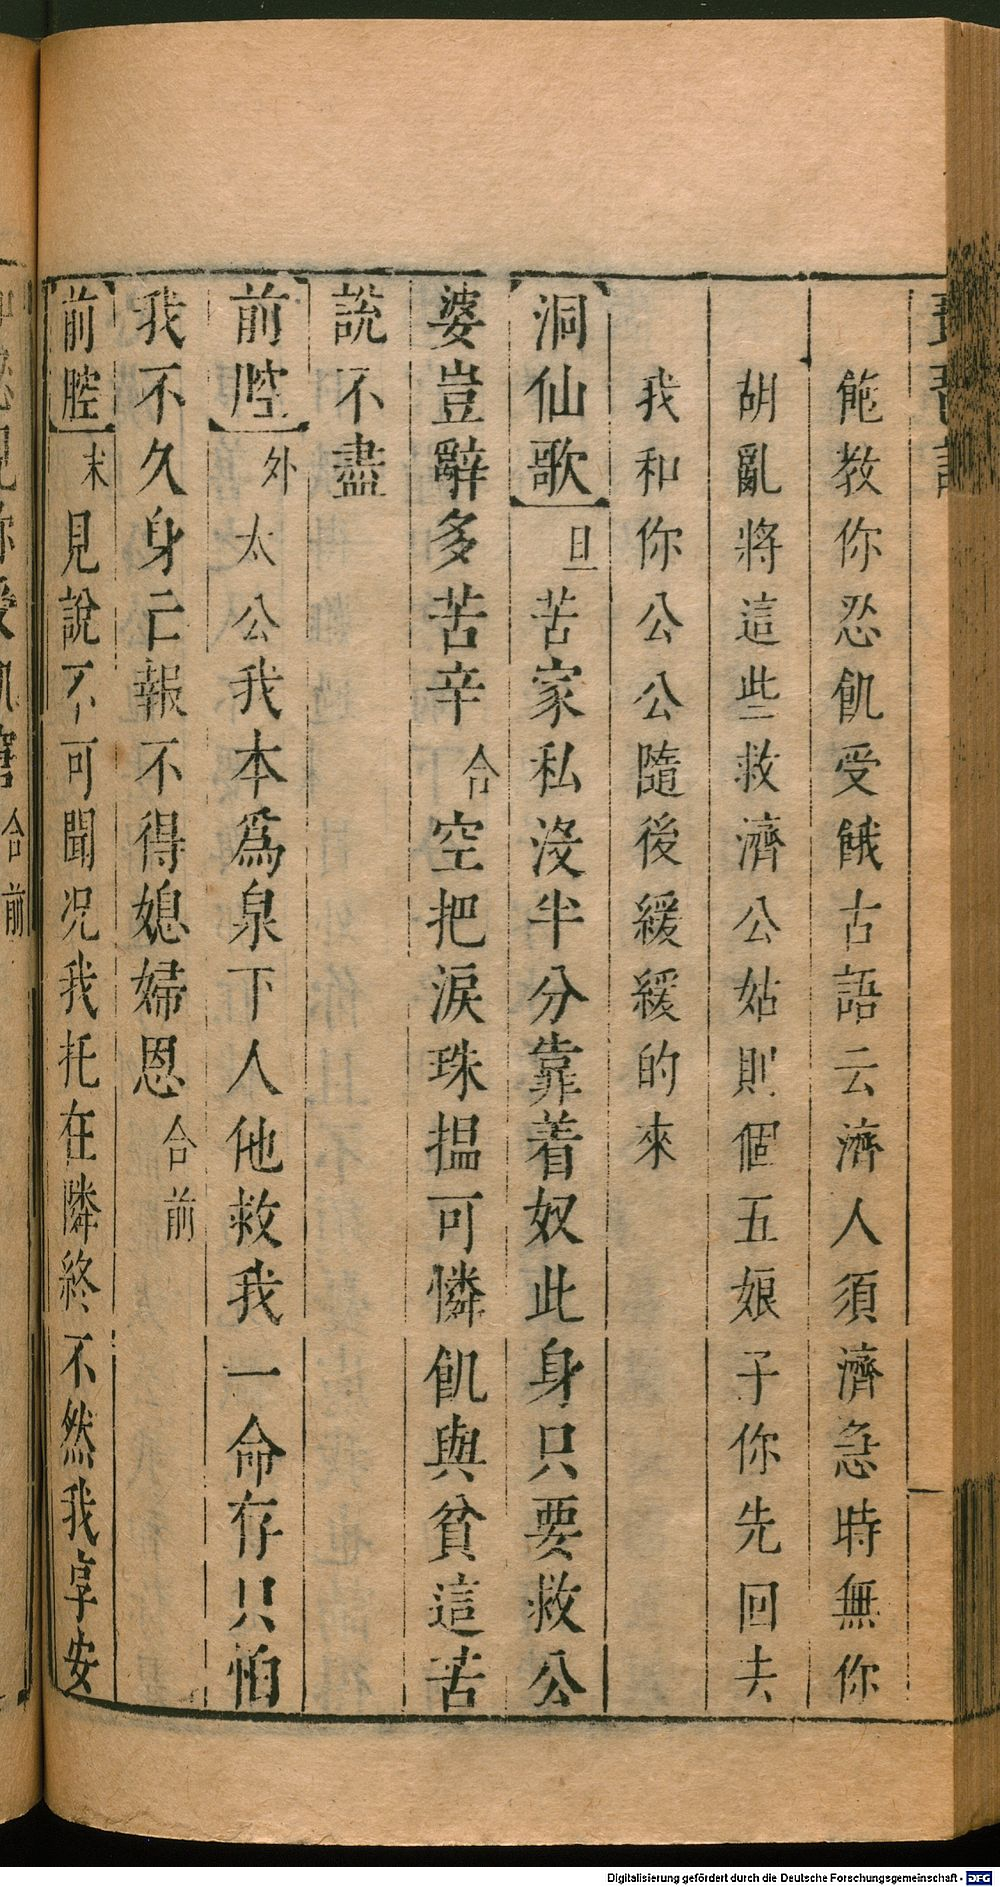 琵琶記
飽教你忍飢受餓古語云濟人須濟急時無你
胡亂將這些救濟公姑則個五娘子你先回去
我和你公公隨後緩緩的來
洞仙歌 旦 苦家私沒半分靠着奴此身只要救公
婆豈辭多苦辛 合 空把淚珠揾可憐飢與貧這苦
說不盡
前腔 外 太公我本爲泉下人他救我一命存只怕
我不久身亡報不得媳婦恩 合前
前腔 末 見說不可聞况我托在隣終不然我享安
你受飢窘 合前
Digitalisierung gefördert durch die Deutsche Forschungsgemeinschaft - DFG